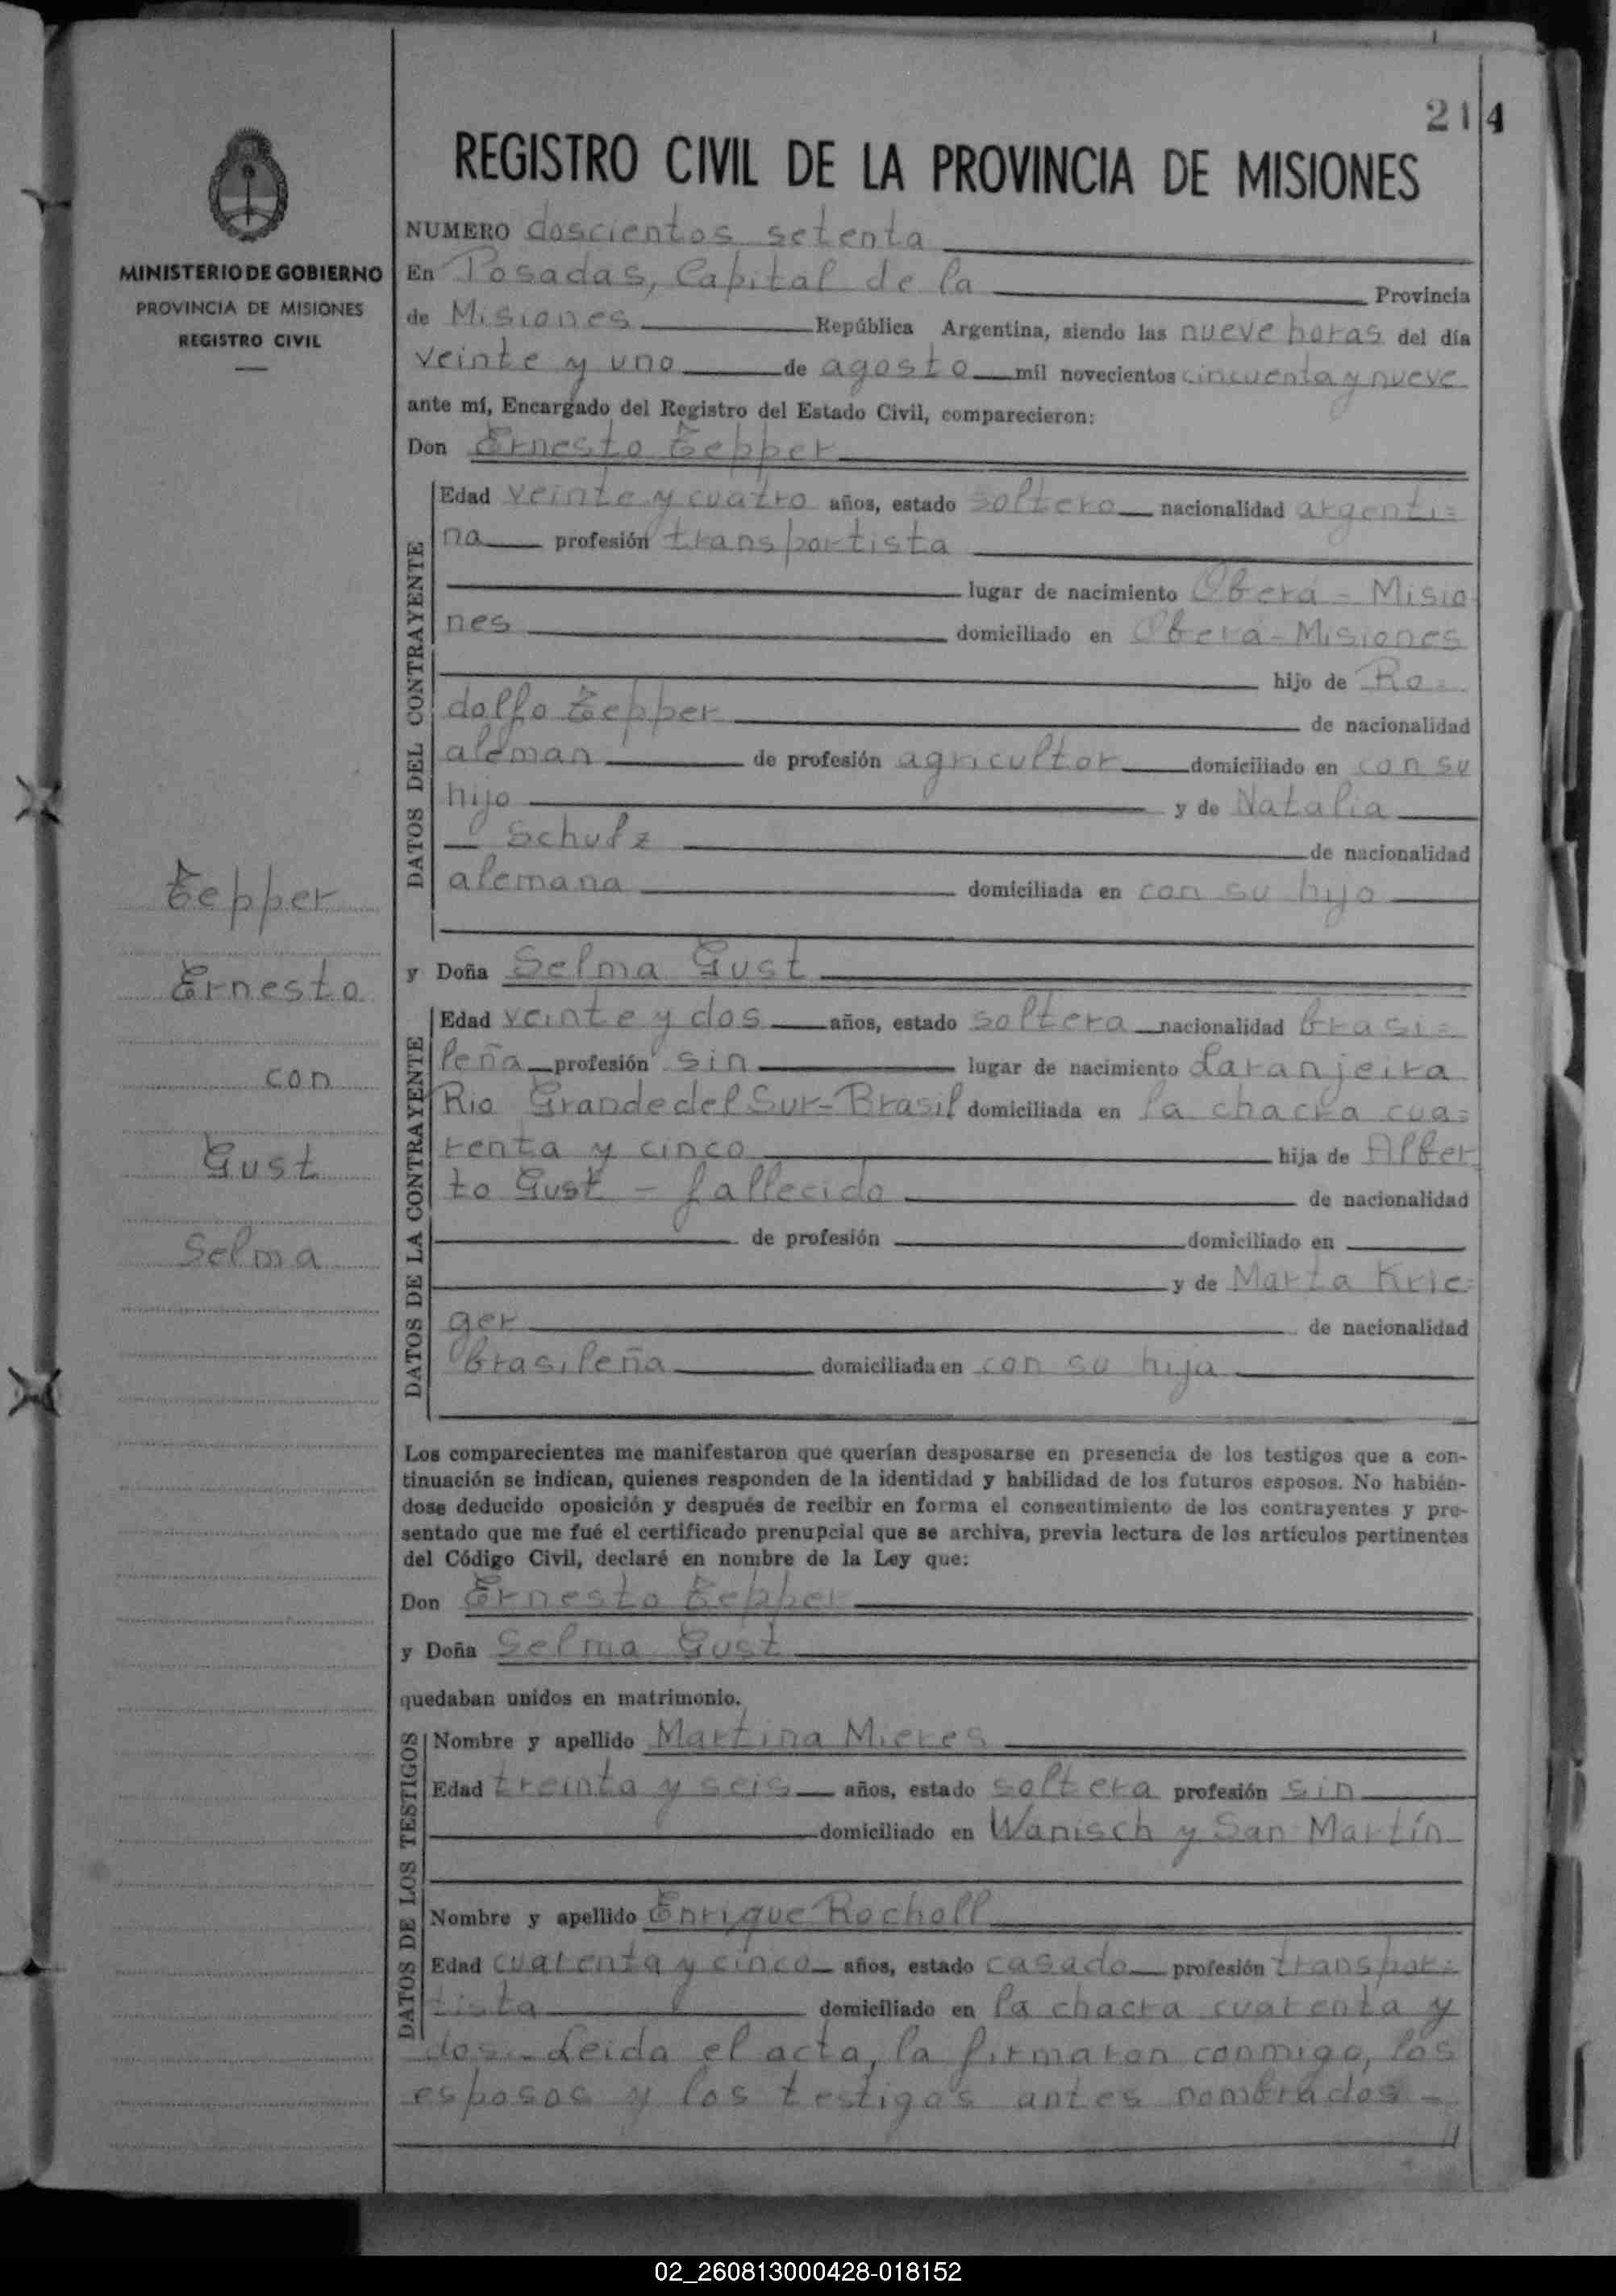 214
REGISTRO CIVIL DE LA PROVINCIA DE MISIONES
MINISTERIO DE GOBIERNO
PROVINCIA DE MISIONES
REGISTRO CIVIL
NUMERO doscientos setenta
En Posadas, Capital de la Provincia
de Misiones República Argentina, siendo las nueve horas del día
veinte y uno de agosto mil novecientos cincuenta y nueve
ante mí, Encargado del Registro del Estado Civil, comparecieron:
Don Ernesto Tepper
DATOS DEL CONTRAYENTE
Edad veinte y cuatro años, estado soltero nacionalidad argenti=
na profesión transportista
lugar de nacimiento Oberá - Misio
nes domiciliado en Oberá - Misiones
hijo de Ro=
dolfo Tepper de nacionalidad
alemán de profesión agricultor domiciliado en con su
hijo y de Natalia
Schulz de nacionalidad
alemana domiciliada en con su hijo
Tepper
Ernesto
con
Gust
Selma
y Doña Selma Gust
DATOS DE LA CONTRAYENTE
Edad veinte y dos años, estado soltera nacionalidad brasi=
leña profesión sin lugar de nacimiento Laranjeira
Rio Grande del Sur - Brasil domiciliada en la chacra cua=
renta y cinco hija de Alber
to Gust - fallecido de nacionalidad
de profesión domiciliado en
y de Marta Krie=
ger de nacionalidad
brasileña domiciliada en con su hija
Los comparecientes me manifestaron que querían desposarse en presencia de los testigos que a con-
tinuación se indican, quienes responden de la identidad y habilidad de los futuros esposos. No habién-
dose deducido oposición y después de recibir en forma el consentimiento de los contrayentes y pre-
sentado que me fué el certificado prenupcial que se archiva, previa lectura de los artículos pertinentes
del Código Civil, declaré en nombre de la Ley que:
Don Ernesto Tepper
y Doña Selma Gust
quedaban unidos en matrimonio.
DATOS DE LOS TESTIGOS
Nombre y apellido Martina Mieres
Edad treinta y seis años, estado soltera profesión sin
domiciliado en Wanisch y San Martín
Nombre y apellido Enrique Rocholl
Edad cuarenta y cinco años, estado casado profesión transpor=
tista domiciliado en la chacra cuarenta y
dos - Leida el acta, la firmaron conmigo, los
esposos y los testigos antes nombrados -
02_260813000428-018152